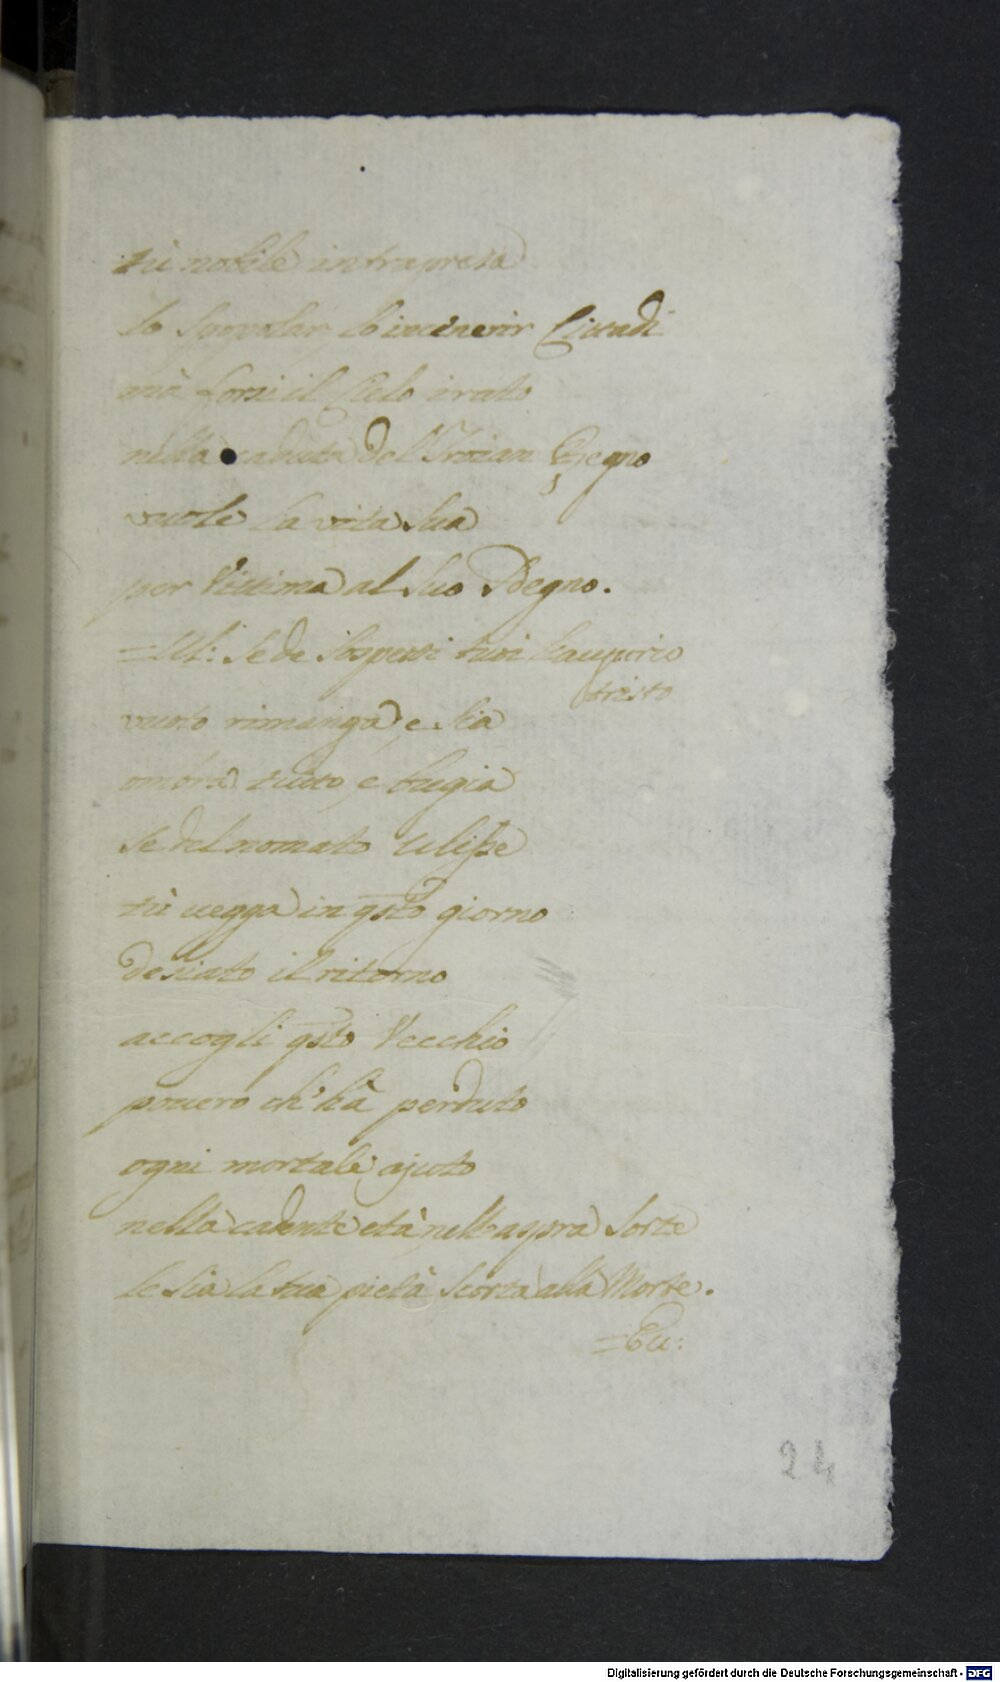 tù nobile intrapresa
lo spopolar lo incinerir Cittadi
mà forsi il Cielo irato
nella caduta del Troian Regno
vuole la vita sua
per Vittima al suo Sdegno.
=Ul: Se de sospetti tuoi l'augurio
tristo
vuoto rimanga, e sia
ombra tutto, e bugia
se del nomato Ulisse
tù uegga in qsto giorno
desiato il ritorno
accogli qsto Vecchio
pouero ch'hà perduto
ogni mortale ajuto
nella cadente età, nell'aspra sorte
le sia la tua pietà scorta alla Morte.
=Eu:
24
Digitalisierung gefördert durch die Deutsche Forschungsgemeinschaft - DFG